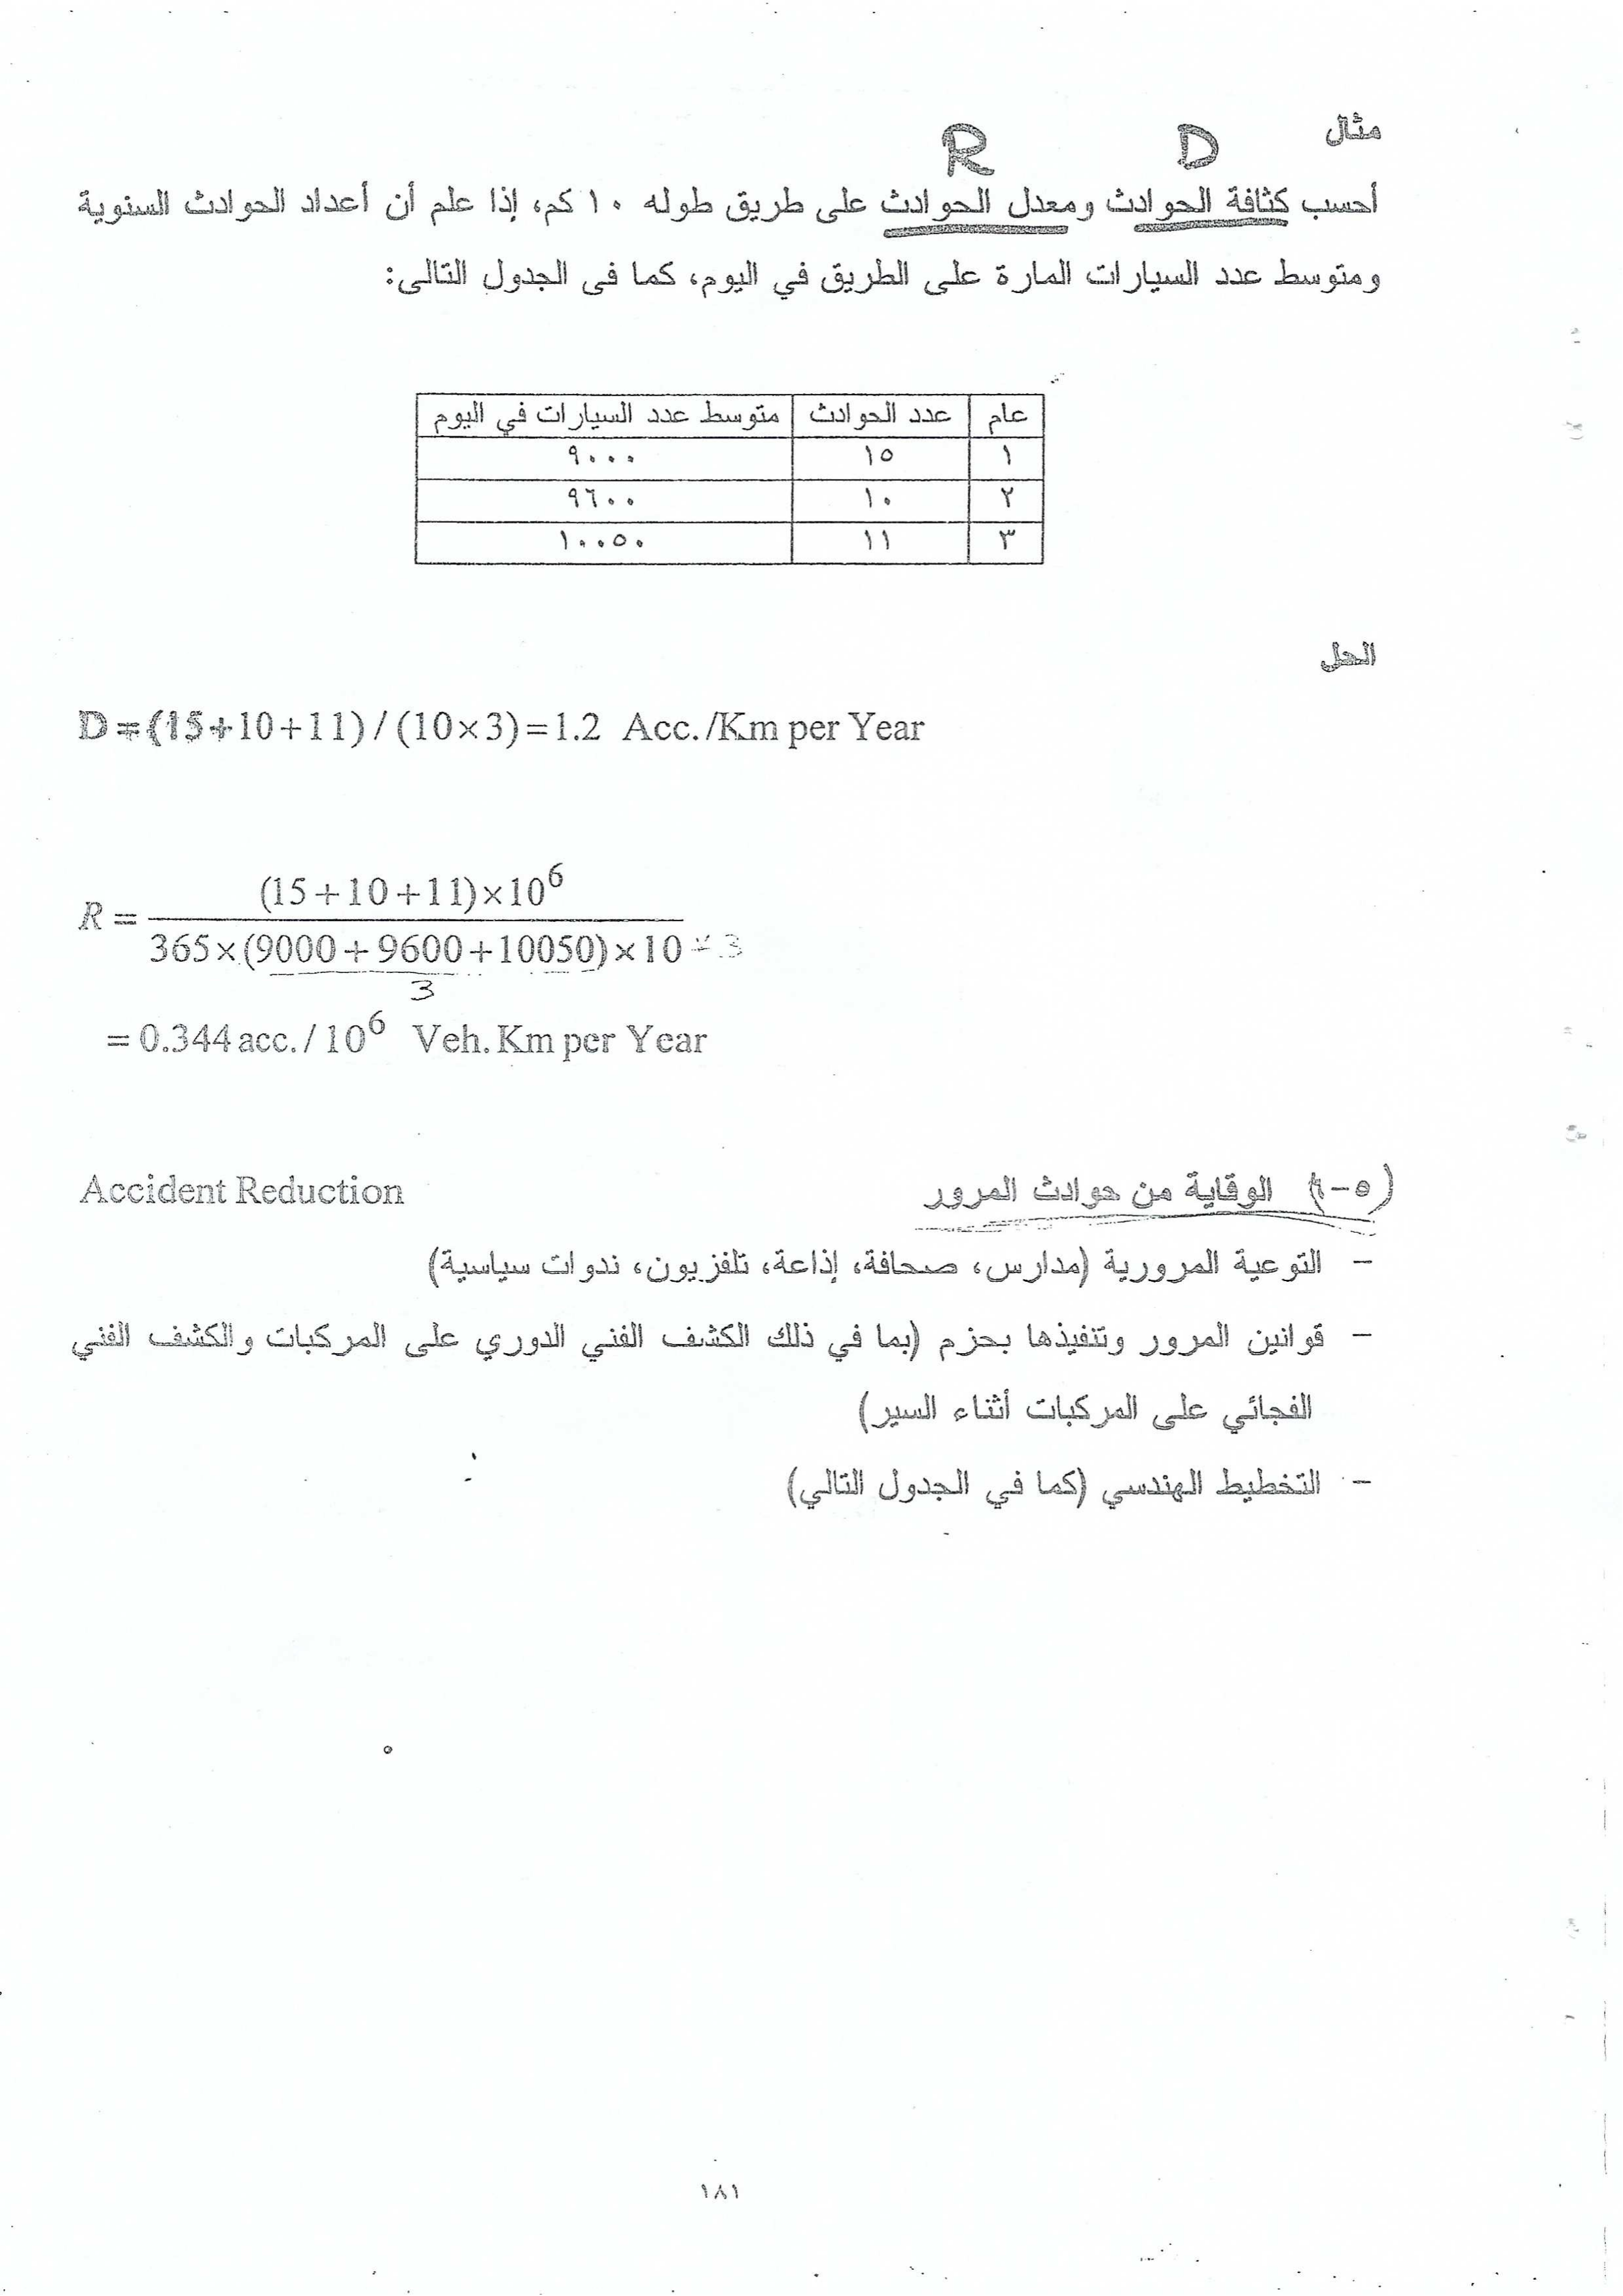 مثال
D R
أحسب كثافة الحوادث ومعدل الحوادث على طريق طوله ١٠ كم، إذا علم أن أعداد الحوادث السنوية
ومتوسط عدد السيارات المارة على الطريق في اليوم، كما فى الجدول التالى:
عام عدد الحوادث متوسط عدد السيارات في اليوم
١ ١٥ ٩٠٠٠
٢ ١٠ ٩٦٠٠
٣ ١١ ١٠٠٥٠
الحل
D = (15+10+11) / (10×3) = 1.2 Acc./Km per Year
(15+10+11)×10⁶
R =
365×(9000+9600+10050)×10 × 3
3
= 0.344 acc. / 10⁶ Veh. Km per Year
(٥-٩) الوقاية من حوادث المرور Accident Reduction
- التوعية المرورية (مدارس، صحافة، إذاعة، تلفزيون، ندوات سياسية)
- قوانين المرور وتنفيذها بحزم (بما في ذلك الكشف الفني الدوري على المركبات والكشف الفني
الفجائي على المركبات أثناء السير)
- التخطيط الهندسي (كما في الجدول التالي)
١٨١